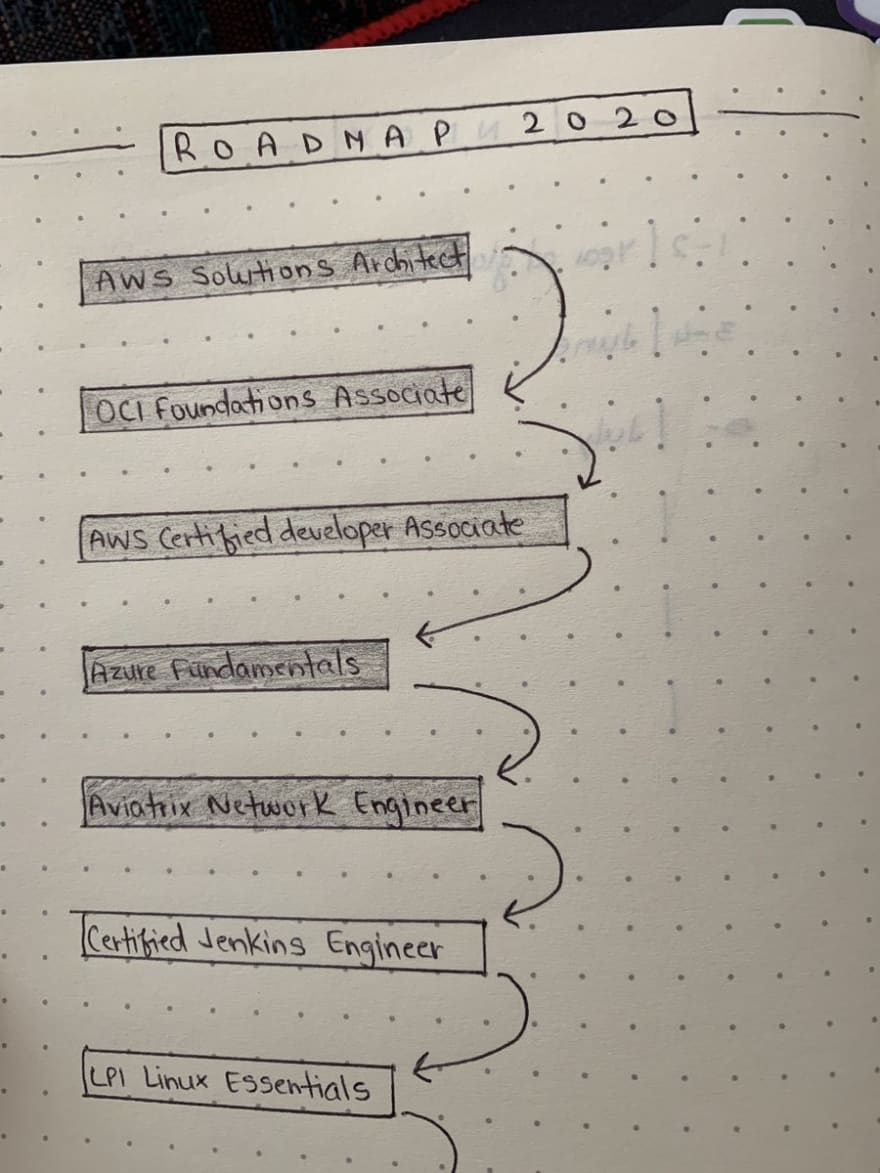 ROADMAP 2020
AWS Solutions Architect
OCI Foundations Associate
AWS Certified developer Associate
Azure Fundamentals
Aviatrix Network Engineer
Certified Jenkins Engineer
LPI Linux Essentials